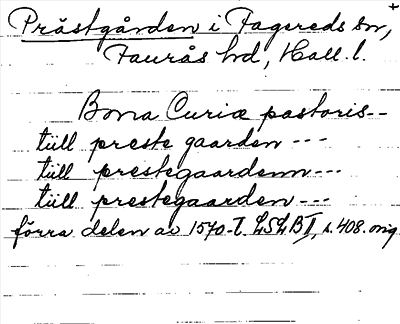 Prästgården i Fagereds sn,
Faurås hd, Hall. l.
Bona Curiæ pastoris--
tiill preste gaarden ---
tiill prestegaardenn---
tiill prestegaarden ---
förra delen av 1570-t. LSLB II, s. 408. orig